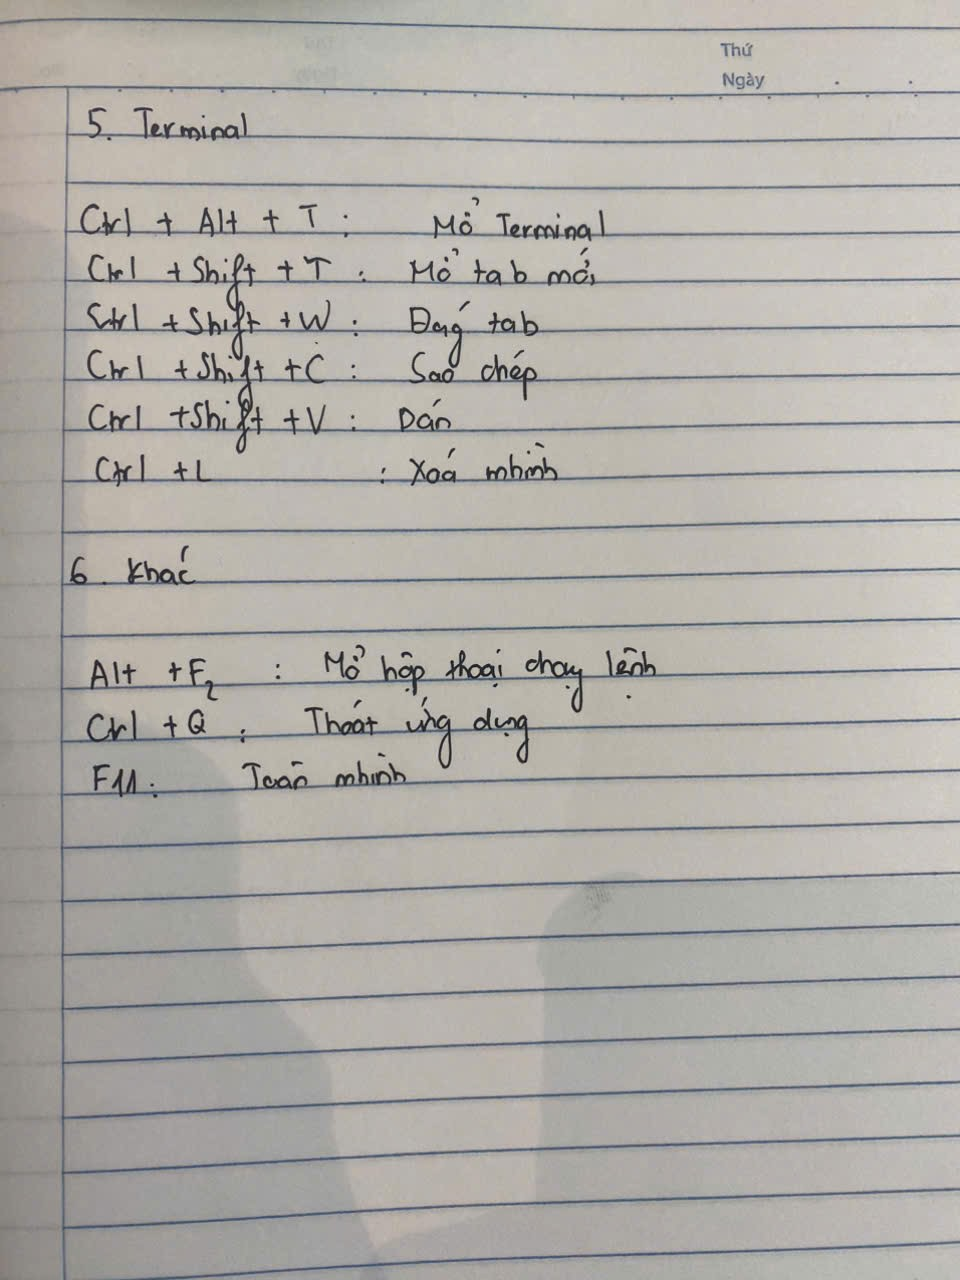 Thứ
Ngày
5. Terminal
Ctrl + Alt + T : Mở Terminal
Ctrl + Shift + T : Mở tab mới
Ctrl + Shift + W : Đóng tab
Ctrl + Shift + C : Sao chép
Ctrl + Shift + V : Dán
Ctrl + L : Xoá mhình
6. Khác
Alt + F2 : Mở hộp thoại chạy lệnh
Ctrl + Q : Thoát ứng dụng
F11 : Toàn mhình